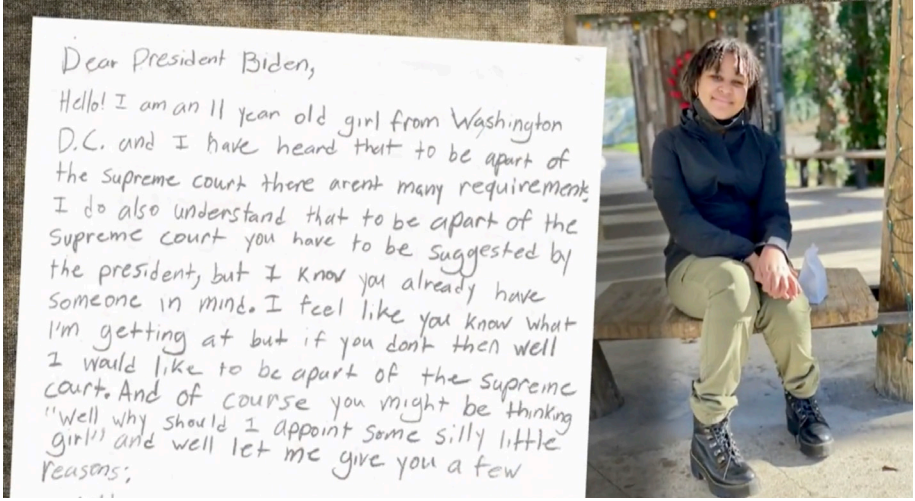 Dear President Biden,
Hello! I am an 11 year old girl from Washington
D.C. and I have heard that to be apart of
the Supreme court there arent many requirements
I do also understand that to be apart of the
Supreme court you have to be suggested by
the president, but I know you already have
someone in mind. I feel like you know what
I'm getting at but if you dont then well
I would like to be apart of the Supreme
court. And of course you might be thinking
"Well why should I appoint some silly little
girl" and well let me give you a few
reasons: